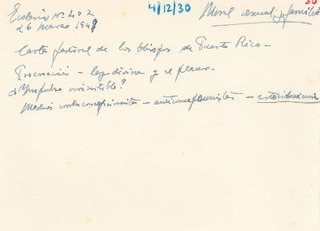 Ecclesia Nº 402
4/12/30
Moral sexual y familiar
26 marzo 1949
Carta pastoral de los obispos de Puerto Rico.
Procreación - ley divina y el placer.
¿Impulso irresistible?
Medios anticoncepcionistas - - esterilización